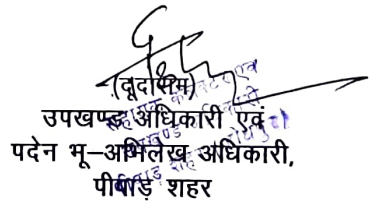 (दूदाराम)
उपखण्ड अधिकारी एवं
पदेन भू–अभिलेख अधिकारी,
पीपाड़ शहर